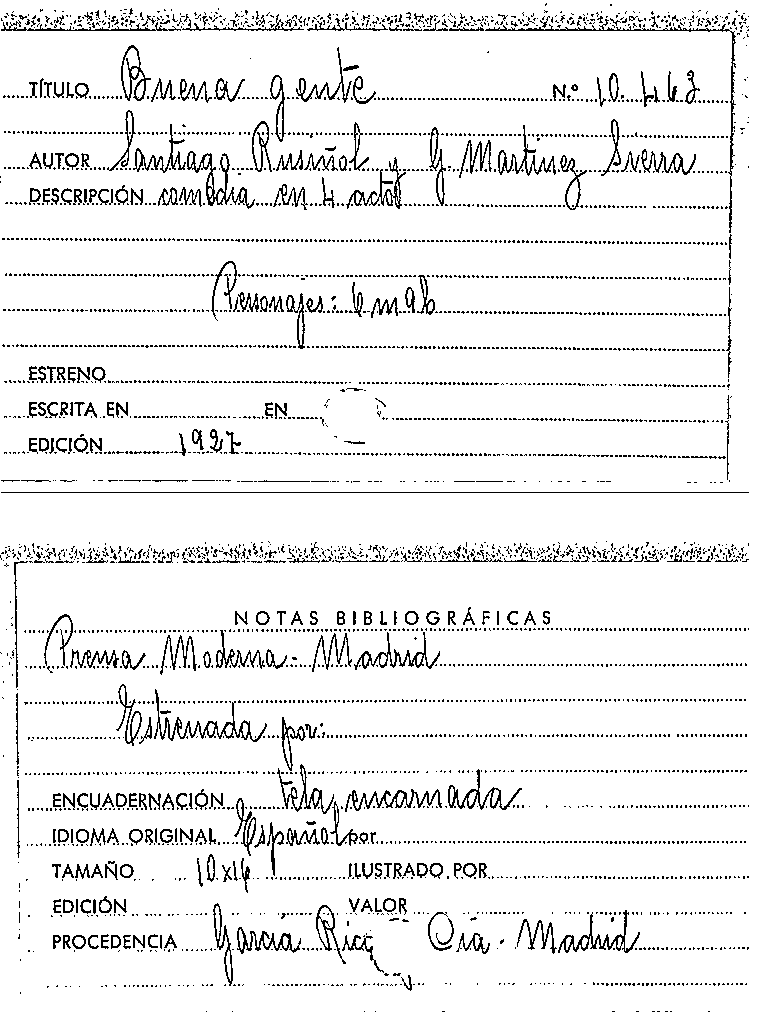 TÍTULO Buena gente N.º 10.463
AUTOR Santiago Rusiñol y G. Martinez Sierra
DESCRIPCIÓN comedia en 4 actos
Personajes: 6 m 9 h
ESTRENO
ESCRITA EN EN
EDICIÓN 1927
NOTAS BIBLIOGRÁFICAS
Prensa Moderna - Madrid
Estrenada por:
ENCUADERNACIÓN tela encarnada
IDIOMA ORIGINAL Español por
TAMAÑO 10x16 ILUSTRADO POR
EDICIÓN VALOR
PROCEDENCIA García Rico Cía - Madrid